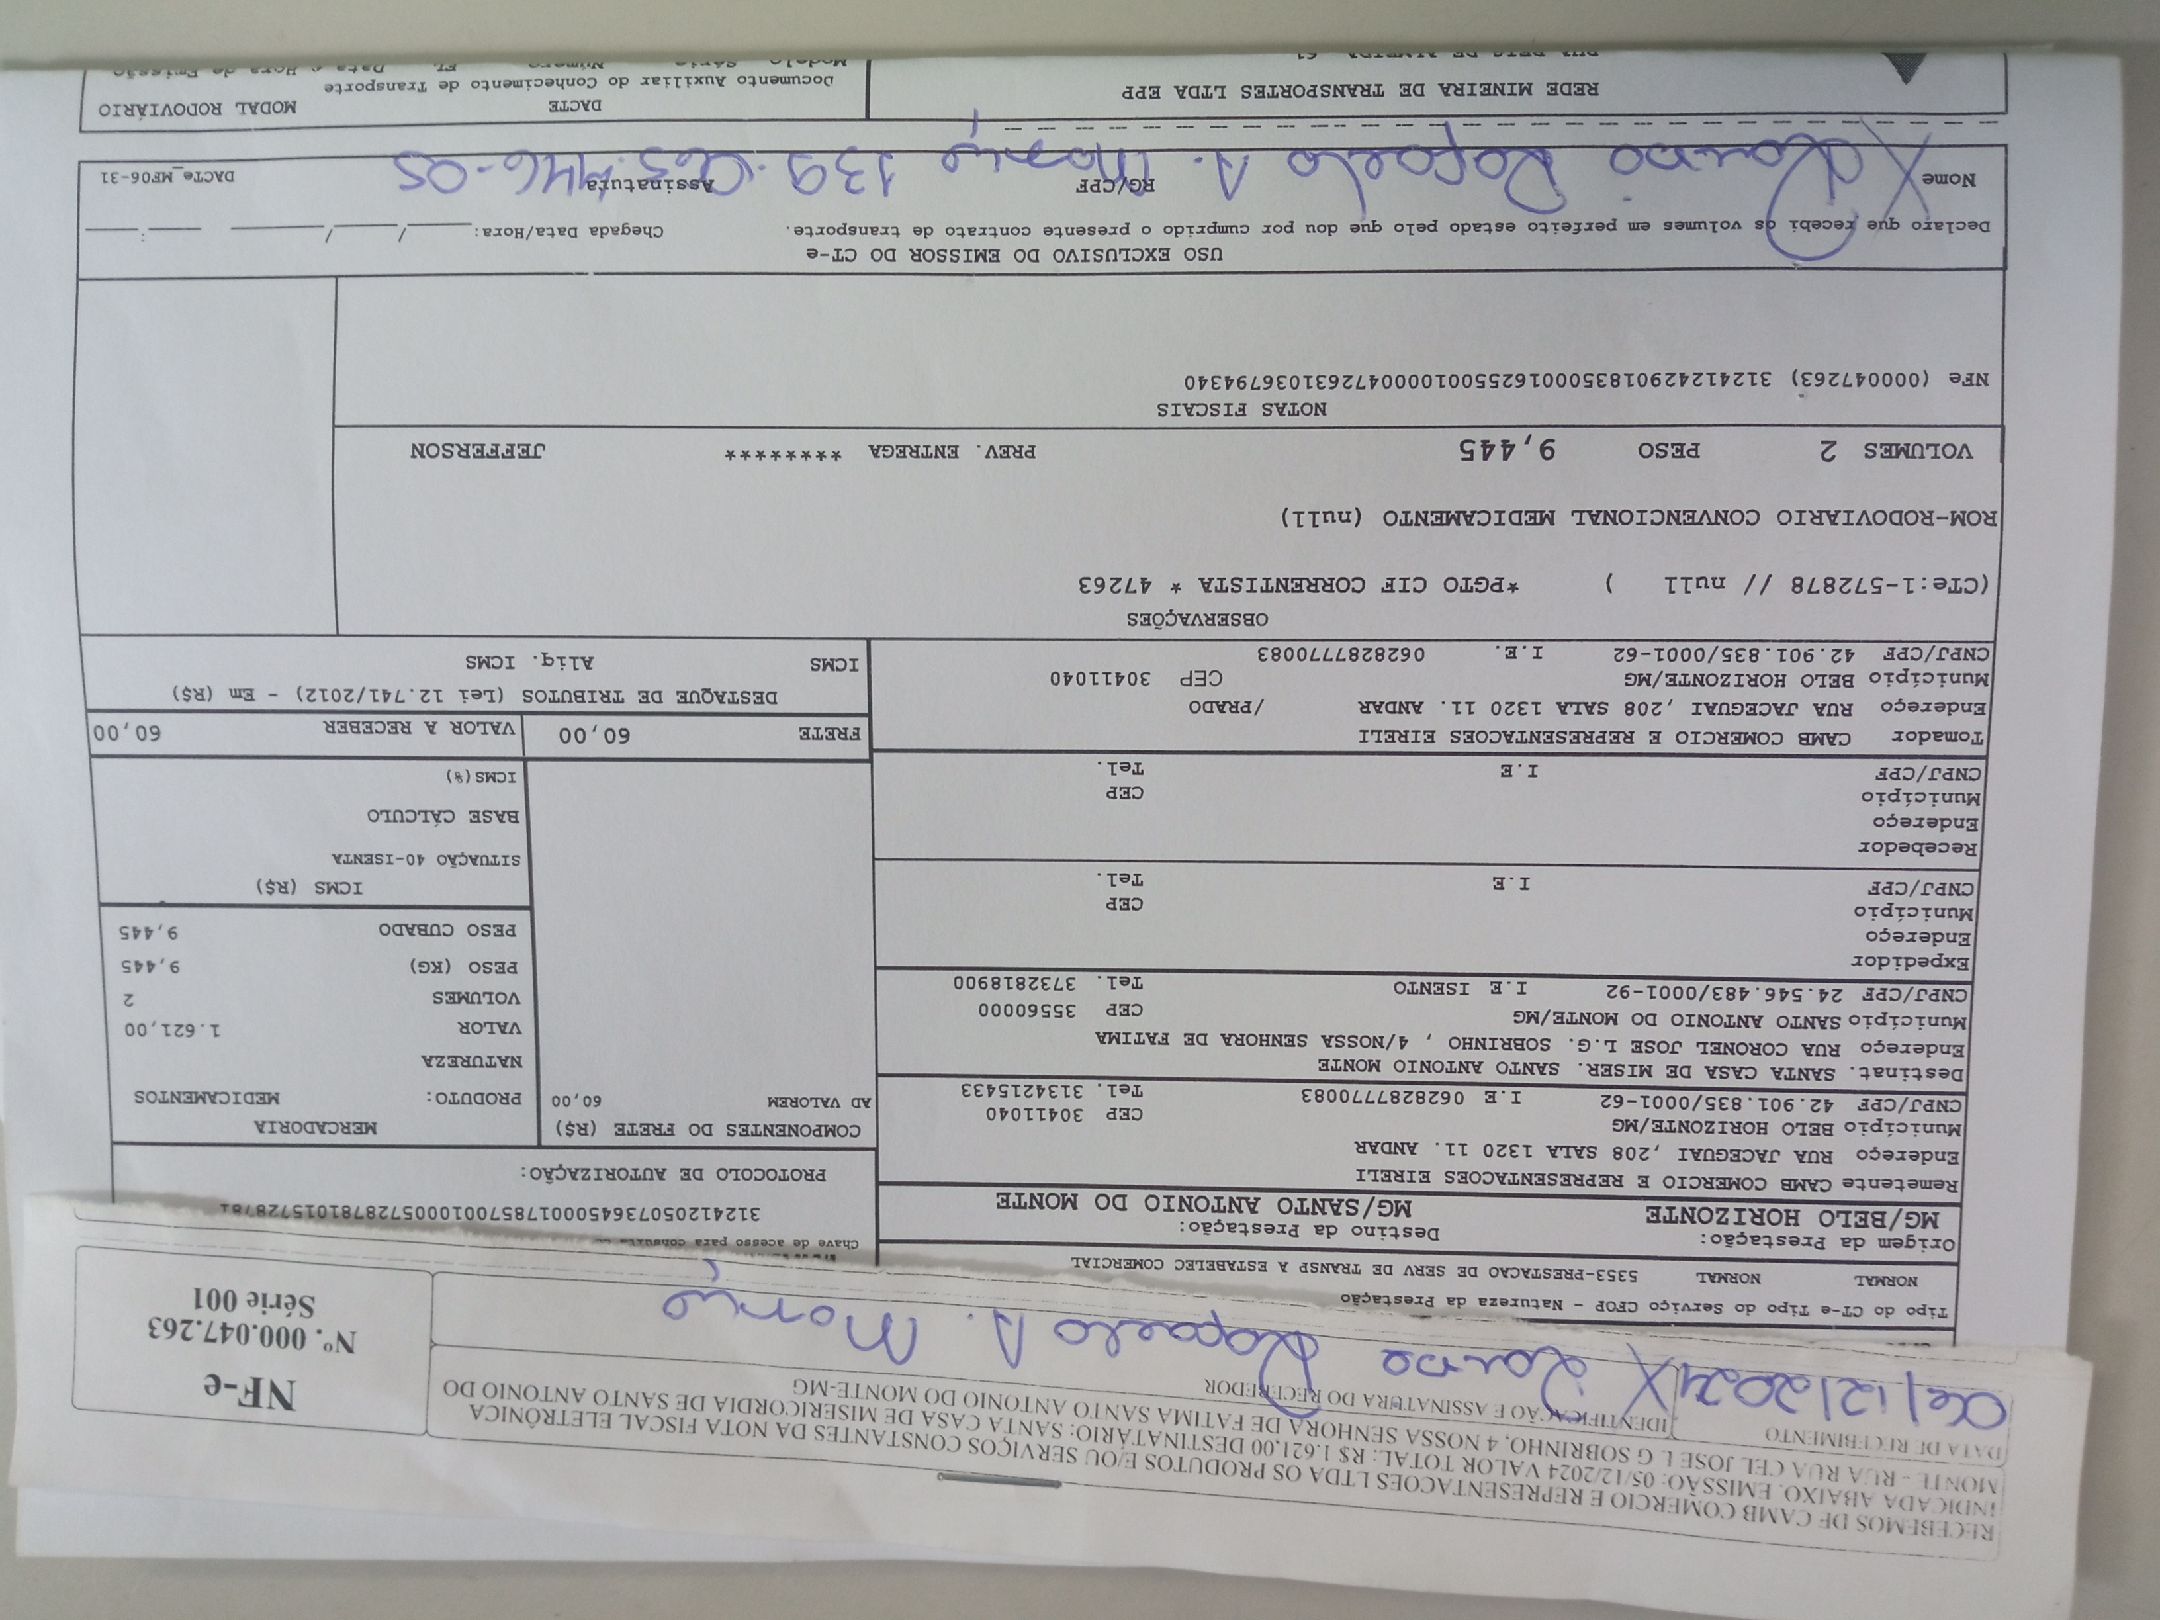 RECEBEMOS DE CAMB COMERCIO E REPRESENTACOES LTDA OS PRODUTOS E/OU SERVIÇOS CONSTANTES DA NOTA FISCAL ELETRÔNICA
INDICADA ABAIXO. EMISSÃO: 05/12/2024 VALOR TOTAL: R$ 1.621,00 DESTINATÁRIO: SANTA CASA DE MISERICORDIA DE SANTO ANTONIO DO
MONTE - RUA RUA CEL JOSE L G SOBRINHO, 4 NOSSA SENHORA DE FATIMA SANTO ANTONIO DO MONTE-MG
DATA DE RECEBIMENTO
IDENTIFICAÇÃO E ASSINATURA DO RECEBEDOR
06/12/2024 X
NF-e
Nº. 000.047.263
Série 001
Tipo do CT-e Tipo do Serviço CFOP - Natureza da Prestação
NORMAL NORMAL 5353-PRESTACAO DE SERV DE TRANSP A ESTABELEC COMERCIAL
Chave de acesso para consulta
Origem da Prestação: Destino da Prestação:
MG/BELO HORIZONTE MG/SANTO ANTONIO DO MONTE
PROTOCOLO DE AUTORIZAÇÃO:
Remetente CAMB COMERCIO E REPRESENTACOES EIRELI
Endereço RUA JACEGUAI ,208 SALA 1320 11. ANDAR
Município BELO HORIZONTE/MG CEP 30411040
CNPJ/CPF 42.901.835/0001-62 I.E 0628287770083 Tel. 3134215433
Destinat. SANTA CASA DE MISER. SANTO ANTONIO MONTE
Endereço RUA CORONEL JOSE L.G. SOBRINHO , 4/NOSSA SENHORA DE FATIMA
Município SANTO ANTONIO DO MONTE/MG CEP 35560000
CNPJ/CPF 24.546.483/0001-92 I.E ISENTO Tel. 3732818900
Expedidor
Endereço
Município CEP
CNPJ/CPF I.E Tel.
Recebedor
Endereço
Município CEP
CNPJ/CPF I.E Tel.
Tomador CAMB COMERCIO E REPRESENTACOES EIRELI
Endereço RUA JACEGUAI ,208 SALA 1320 11. ANDAR /PRADO
Município BELO HORIZONTE/MG CEP 30411040
CNPJ/CPF 42.901.835/0001-62 I.E. 0628287770083
COMPONENTES DO FRETE (R$)
AD VALOREM 60,00
MERCADORIA
PRODUTO: MEDICAMENTOS
NATUREZA
VALOR 1.621,00
VOLUMES 2
PESO (KG) 9,445
PESO CUBADO 9,445
ICMS (R$)
SITUAÇÃO 40-ISENTA
BASE CÁLCULO
ICMS(%)
FRETE 60,00 VALOR A RECEBER 60,00
DESTAQUE DE TRIBUTOS (Lei 12.741/2012) - Em (R$)
ICMS Aliq. ICMS
OBSERVAÇÕES
(CTe:1-572878 // null ) *PGTO CIF CORRENTISTA * 47263
ROM-RODOVIARIO CONVENCIONAL MEDICAMENTO (null)
VOLUMES 2 PESO 9,445 PREV. ENTREGA ******** JEFFERSON
NOTAS FISCAIS
NFe (000047263) 31241242901835000162550010000472631036794340
USO EXCLUSIVO DO EMISSOR DO CT-e
Declaro que recebi os volumes em perfeito estado pelo que dou por cumprido o presente contrato de transporte. Chegada Data/Hora: ___/___/_____ ___:___
Nome RG/CPF Assinatura DACTe_MF06-31
REDE MINEIRA DE TRANSPORTES LTDA EPP
DACTE MODAL RODOVIÁRIO
Documento Auxiliar do Conhecimento de Transporte
Modelo Série Número FL Data e Hora de Emissão